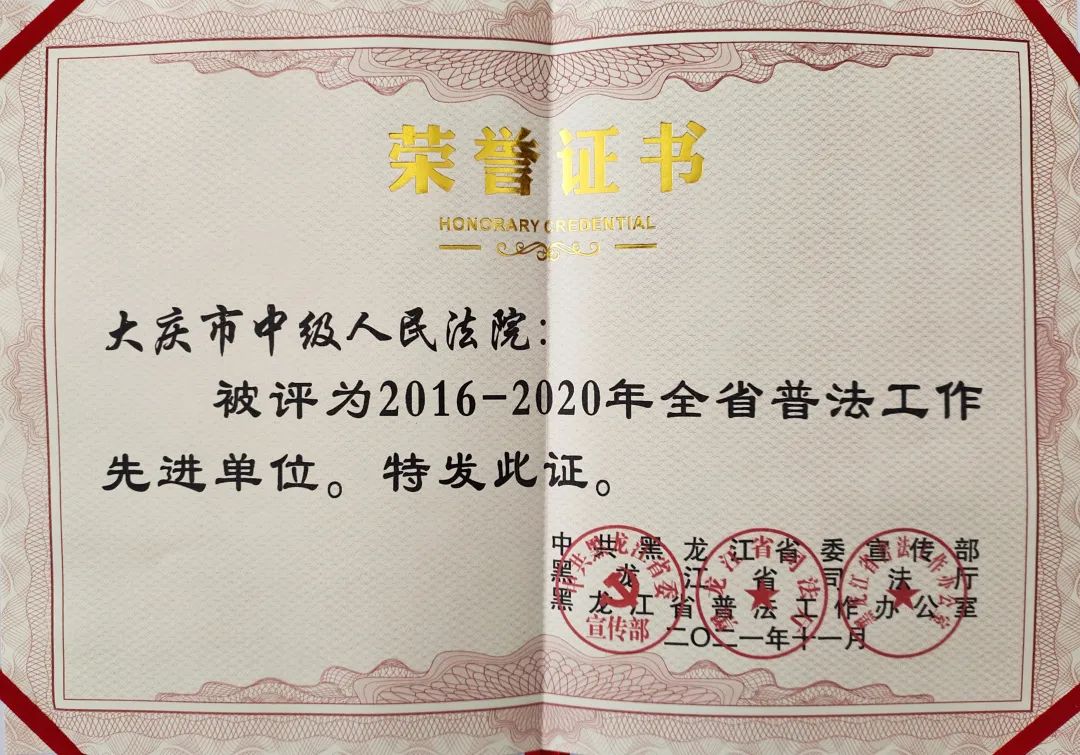 荣誉证书
HONORARY CREDENTIAL
大庆市中级人民法院：
被评为2016-2020年全省普法工作
先进单位。特发此证。
中共黑龙江省委宣传部
黑龙江省司法厅
黑龙江省普法工作办公室
二〇二一年十一月
中共黑龙江省委
宣传部
黑龙江省司法厅
黑龙江省普法工作办公室